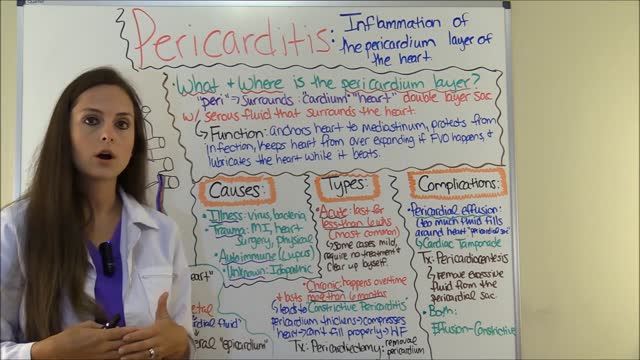 Pericarditis:
Inflammation of
the pericardium layer of
the heart.
What + Where is the pericardium layer?
"peri" → surrounds "cardium" "heart" double layer sac
w/ serous fluid that surrounds the heart.
↳ Function: anchors heart to mediastinum, protects from
infection, keeps heart from over expanding if FVO happens, &
lubricates the heart while it beats.
Causes:
• Illness: virus, bacteria
• Trauma: MI, heart
surgery, physical
• Autoimmune (Lupus)
• Unknown: Idopathic
eart"
etal
rdial fluid"
eral "epicardium"
Types:
• Acute: last for
less than 6wks
(most common)
↳ some cases mild,
require no treatment &
clear up by self.
• Chronic: happens overtime
& lasts more than 6 months
↳ leads to "Constrictive Pericarditis"
pericardium thickens → compresses
heart → can't fill properly → HF
Tx: Pericardectomy: removal
pericardium
Complications:
Pericardial effusion:
(too much fluid fills
around heart "pericardial
↳ Cardiac Tamponade
Tx: Pericardiocentesis
↳ remove excessive
fluid from the
pericardial sac.
• Both:
Effusion-Constrictive